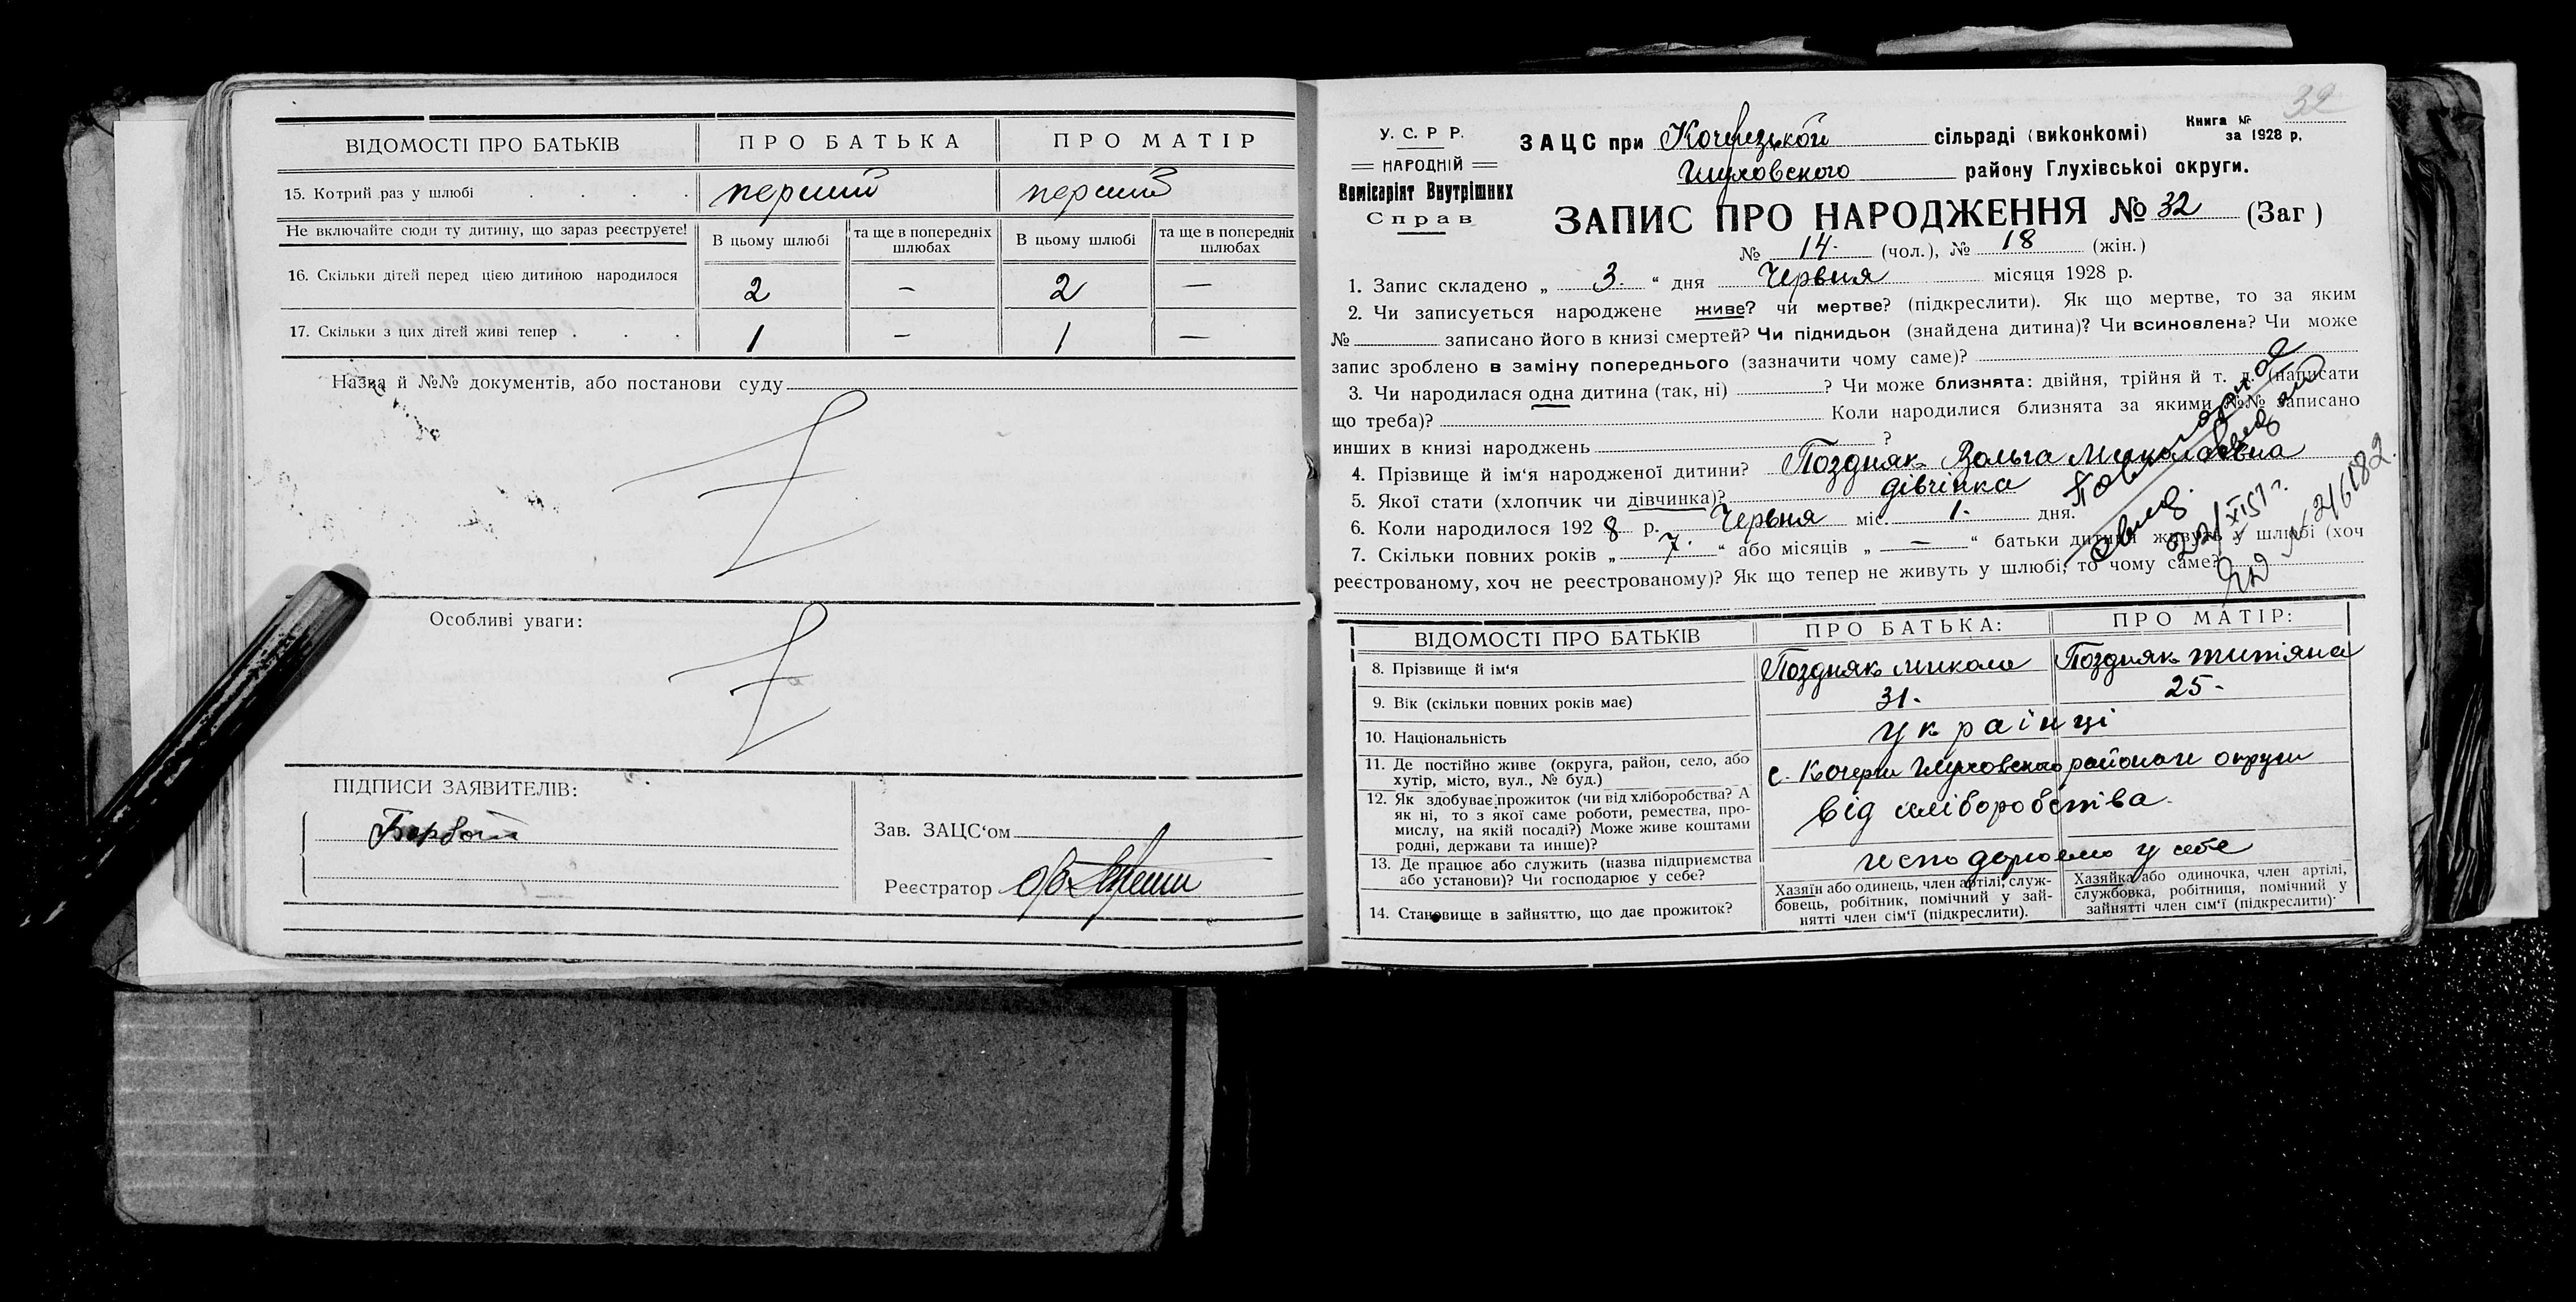 ВІДОМОСТІ ПРО БАТЬКІВ
ПРО БАТЬКА
ПРО МАТІР
15. Котрий раз у шлюбі . . . .
перший
перший
Не включайте сюди ту дитину, що зараз реєструєте!
В цьому шлюбі
та ще в попередніх шлюбах
В цьому шлюбі
та ще в попередніх шлюбах
16. Скільки дітей перед цією дитиною народилося
2 — 2 —
17. Скільки з цих дітей живі тепер . . .
1 — 1 —
Назва й №№ документів, або постанови суду
Особливі уваги:
ПІДПИСИ ЗАЯВИТЕЛІВ:
Зав. ЗАЦС‘ом
Реєстратор
32
У. С. Р Р.
НАРОДНІЙ
Комісаріят Внутрішних
Справ
ЗАЦС при сільраді (виконкомі)
Книга №
за 1928 р.
Глуховского району Глухівської округи.
ЗАПИС ПРО НАРОДЖЕННЯ № 32 (Заг )
№ 14. (чол.), № 18 (жін.)
1. Запис складено „ 3. “ дня Червня місяця 1928 р.
2. Чи записується народжене живе? чи мертве? (підкреслити). Як що мертве, то за яким
№ записано його в книзі смертей? Чи підкидьок (знайдена дитина)? Чи всиновлена? Чи може
запис зроблено в заміну попереднього (зазначити чому саме)?
3. Чи народилася одна дитина (так, ні) ? Чи може близнята: двійня, трійня й т. д. (написати
що треба)? Коли народилися близнята за якими №№ записано
инших в книзі народжень ?
4. Прізвище й ім‘я народженої дитини? Поздняк Вольга Миколаевна
5. Якої стати (хлопчик чи дівчинка)? дівчінка
6. Коли народилося 192 8 р. Червня міс. 1. дня.
7. Скільки повних років „ 7. “ або місяців „ — “ батьки дитини живуть у шлюбі (хоч
реєстрованому, хоч не реєстрованому)? Як що тепер не живуть у шлюбі, то чому саме?
ВІДОМОСТІ ПРО БАТЬКІВ
ПРО БАТЬКА:
ПРО МАТІР:
8. Прізвище й ім‘я
Поздняк Микола
Поздняк Титяна
9. Вік (скільки повних років має)
31. 25.
10. Національність
українці
11. Де постійно живе (округа, район, село, або
хутір, місто, вул., № буд.)
с. Кочерги Глуховского округи
12. Як здобуває прожиток (чи від хліборобства? А
як ні, то з якої саме роботи, ремества, про-
мислу, на якій посаді?) Може живе коштами
родні, держави та инше)?
від хліборобства.
13. Де працює або служить (назва підприємства
або установи)? Чи господарює у себе?
у себе
14. Становище в зайняттю, що дає прожиток?
Хазяїн або одинець, член артілі, служ-
бовець, робітник, помічний у зай-
нятті член сім‘ї (підкреслити).
Хазяйка або одиночка, член артілі,
службовка, робітниця, помічний у
зайнятті член сім‘ї (підкреслити).